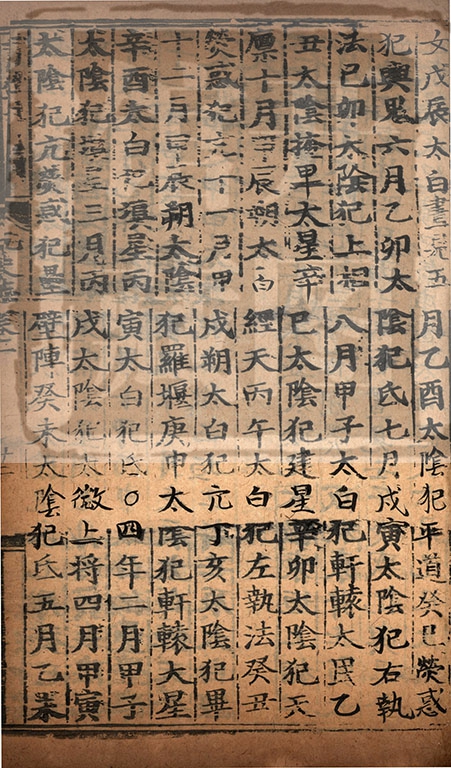 女戊辰太白晝見五月乙酉太陰犯平道癸巳熒惑
犯輿鬼六月乙卯太陰犯氐七月戊寅太陰犯右執
法己卯太陰犯上相八月甲子太白犯軒轅太民乙
丑太陰掩畢大星辛巳太陰犯建星辛卯太陰犯天
廩十月甲辰朔太白經天丙午太白犯左執法癸丑
熒惑犯亢十一月甲戌朔太白犯亢丁亥太陰犯畢
十二月甲辰朔太陰犯羅堰庚申太陰犯軒轅大星
辛酉太白犯填星丙寅太白犯氐○四年二月甲子
太陰犯填星三月丙戌太陰犯太微上將四月甲寅
太陰犯亢熒惑犯壘壁陣癸未太陰犯氐五月乙未